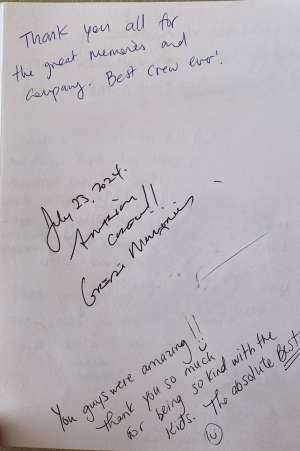 Thank you all for
the great memories and
company. Best Crew ever!
July 23, 2024.
crew!!
You guys were amazing!!
thank you so much
for being so kind with the
kids. The absolute Best